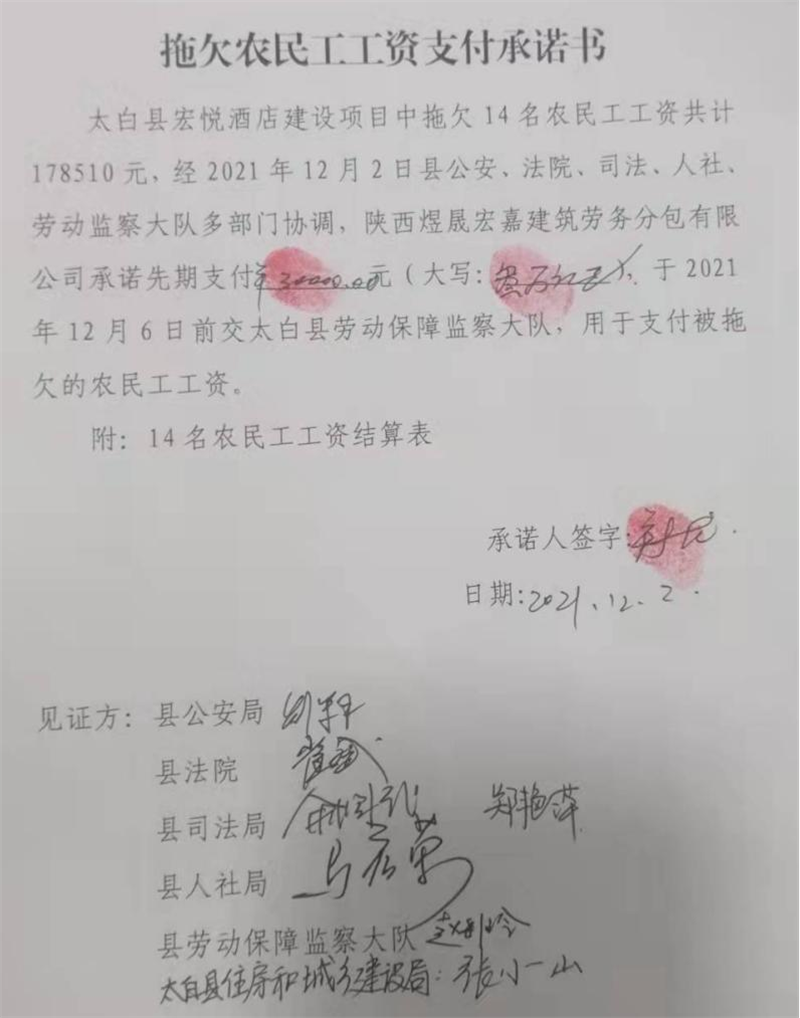 拖欠农民工工资支付承诺书
太白县宏悦酒店建设项目中拖欠14名农民工工资共计
178510元，经2021年12月2日县公安、法院、司法、人社、
劳动监察大队多部门协调，陕西煜晟宏嘉建筑劳务分包有限
公司承诺先期支付¥30000.00元（大写：叁万元），于2021
年12月6日前交太白县劳动保障监察大队，用于支付被拖
欠的农民工工资。
附：14名农民工工资结算表
承诺人签字：
日期：2021.12.2.
见证方：县公安局
县法院
县司法局 郑艳萍
县人社局
县劳动保障监察大队
太白县住房和城乡建设局：张小山